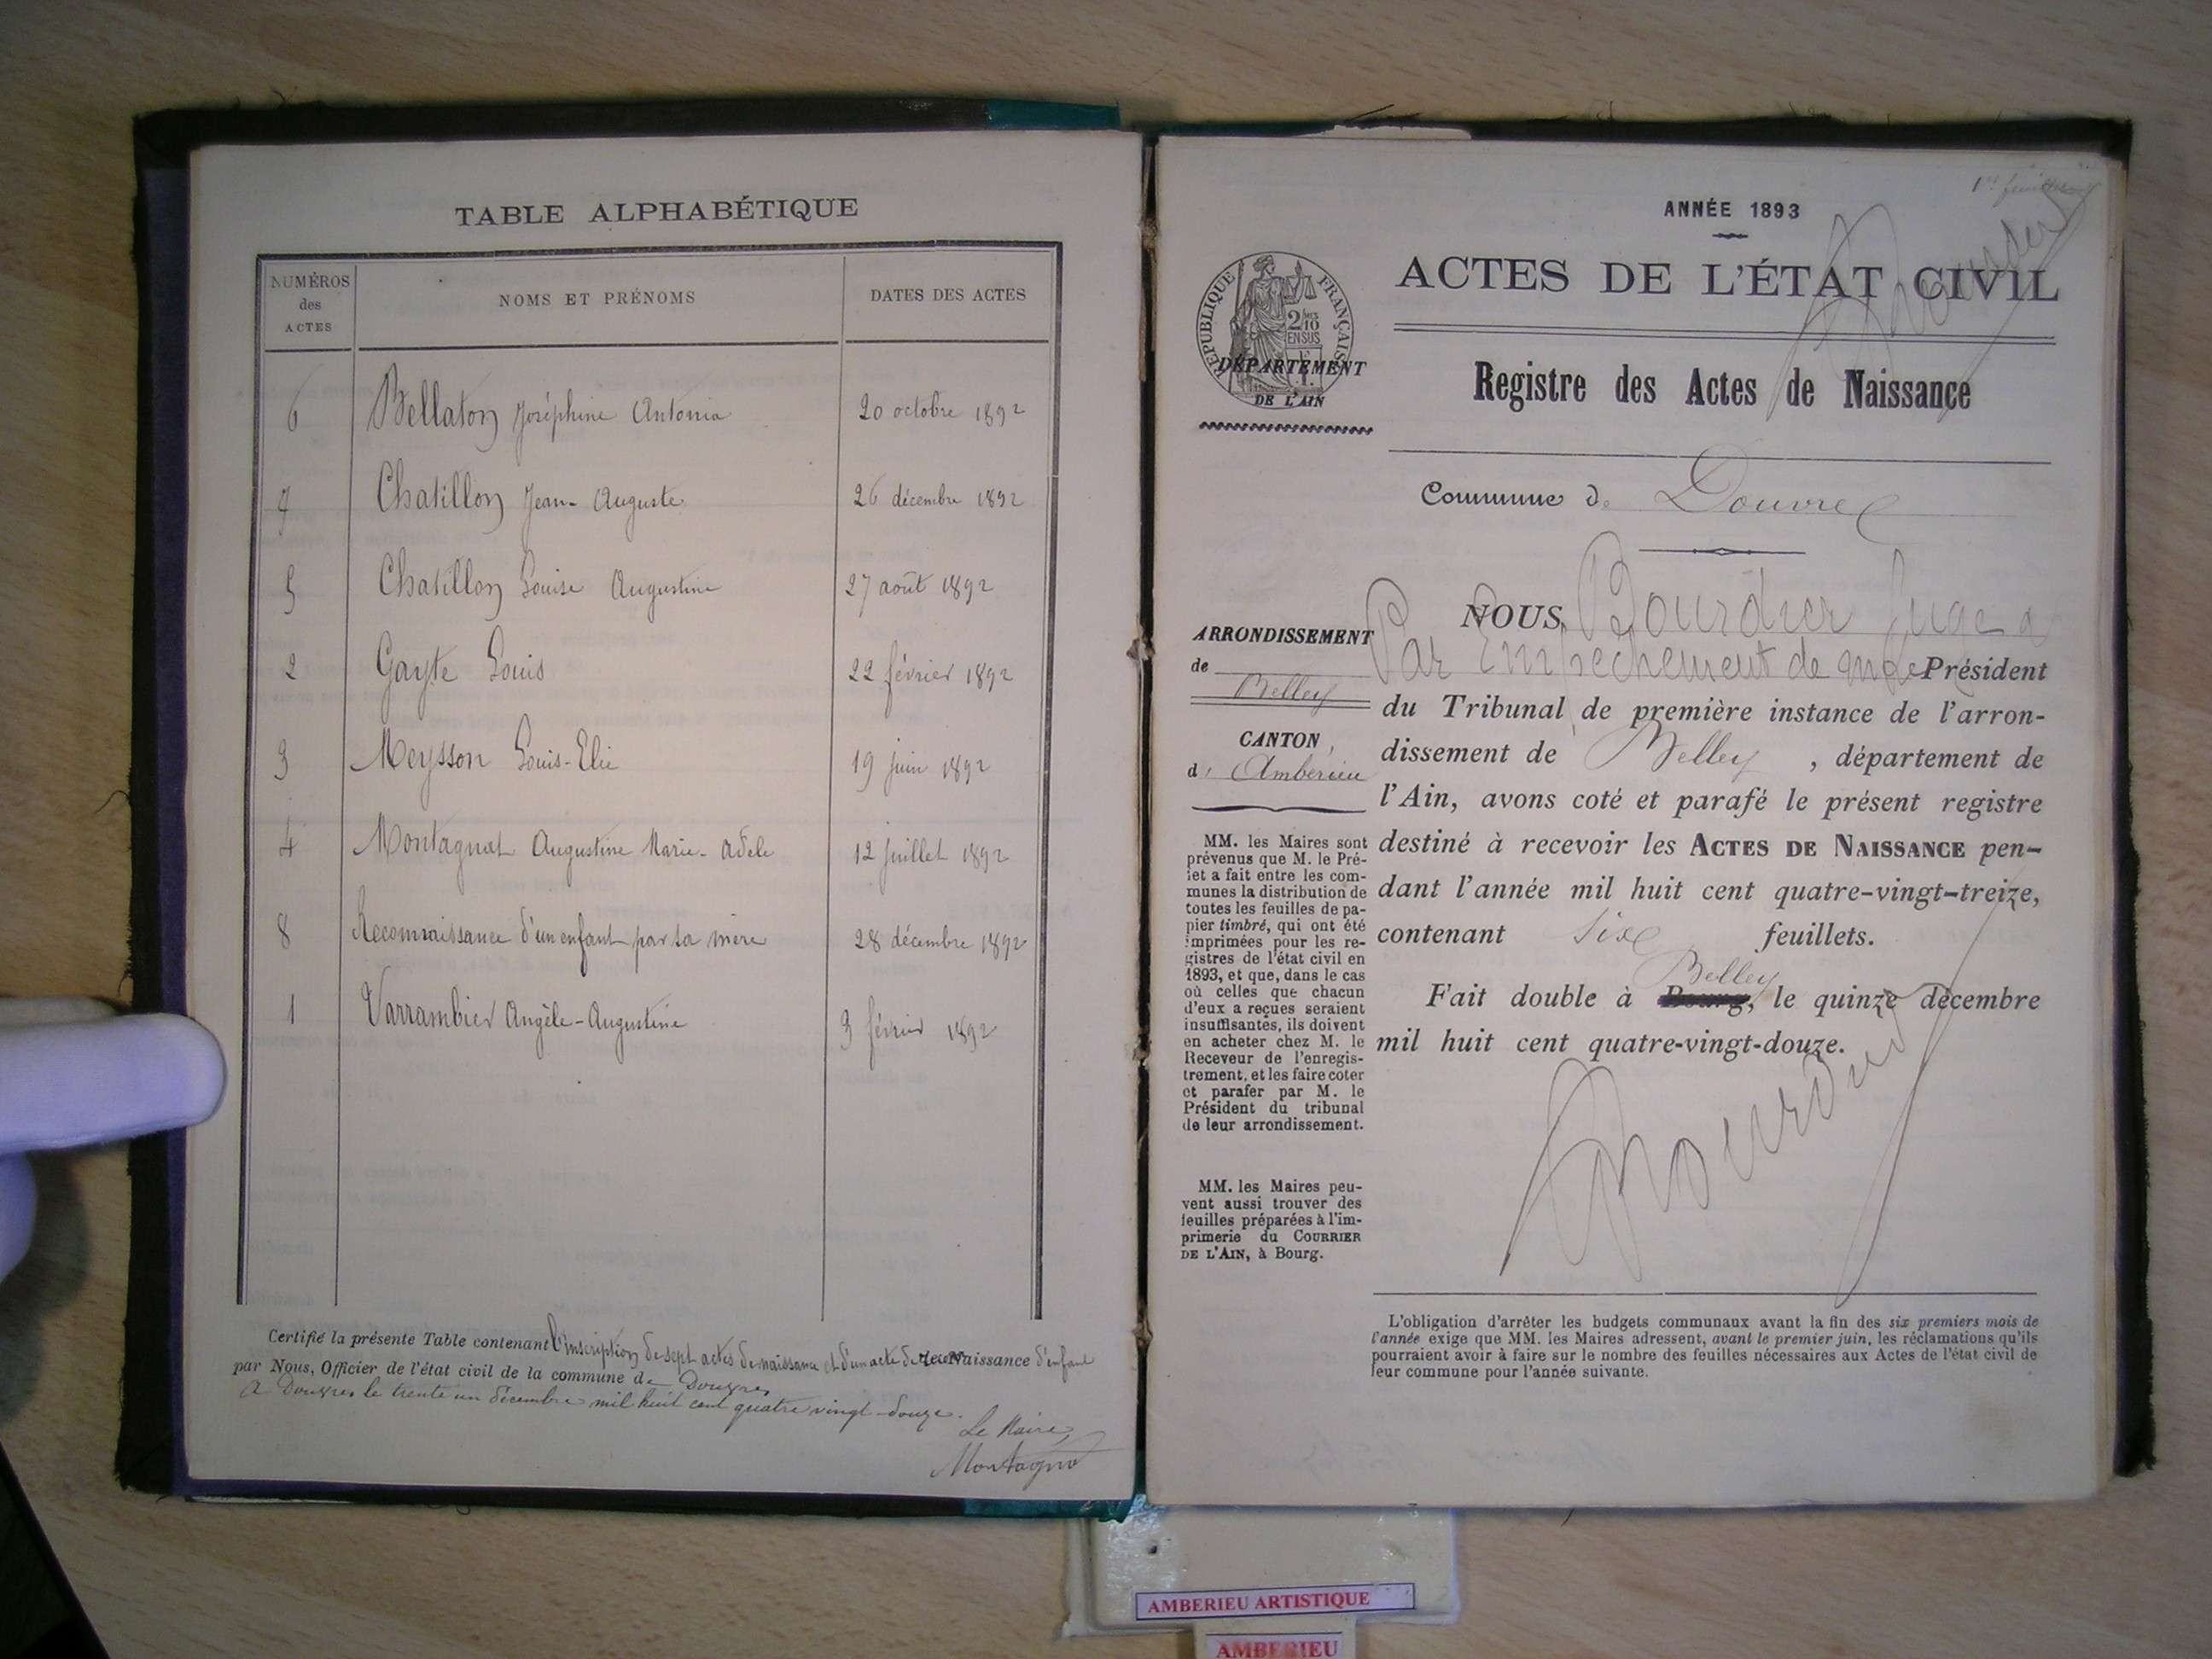 TABLE ALPHABÉTIQUE
NUMÉROS des ACTES
NOMS ET PRÉNOMS
DATES DES ACTES
6 Bellaton Joséphine Antonia 20 octobre 1892
7 Chatillon Jean-Auguste 26 décembre 1892
5 Chatillon Louise Augustine 27 août 1892
2 Gayte Louis 22 février 1892
3 Meysson Louis-Elie 19 juin 1892
4 Montagnat Augustine Marie-Adèle 12 juillet 1892
8 Reconnaissance d'un enfant par sa mère 28 décembre 1892
1 Varrambier Angèle-Augustine 3 février 1892
Certifié la présente Table contenant l'inscription de sept actes de naissance et d'un acte de reconnaissance d'enfant
par Nous, Officier de l'état civil de la commune de Douvres
A Douvres le trente un décembre mil huit cent quatre vingt-douze.
Le Maire,
Montagnat
1er feuillet
Bourdier
ANNÉE 1893
RÉPUBLIQUE FRANÇAISE
2/10 EN SUS
DÉPARTEMENT
DE L'AIN
ACTES DE L'ÉTAT CIVIL
Registre des Actes de Naissance
Commune de Douvres
ARRONDISSEMENT
de
Belley
CANTON
d'Ambérieu
MM. les Maires sont
prévenus que M. le Pré-
fet a fait entre les com-
munes la distribution de
toutes les feuilles de pa-
pier timbré, qui ont été
imprimées pour les re-
gistres de l'état civil en
1893, et que, dans le cas
où celles que chacun
d'eux a reçues seraient
insuffisantes, ils doivent
en acheter chez M. le
Receveur de l'enregis-
trement, et les faire coter
et parafer par M. le
Président du tribunal
de leur arrondissement.
MM. les Maires peu-
vent aussi trouver des
feuilles préparées à l'im-
primerie du COURRIER
DE L'AIN, à Bourg.
NOUS, Bourdier Juge
Par Empêchement de Mr le Président
du Tribunal de première instance de l'arron-
dissement de Belley, département de
l'Ain, avons coté et parafé le présent registre
destiné à recevoir les ACTES DE NAISSANCE pen-
dant l'année mil huit cent quatre-vingt-treize,
contenant six feuillets.
Belley
Fait double à Bourg, le quinze décembre
mil huit cent quatre-vingt-douze.
Bourdier
L'obligation d'arrêter les budgets communaux avant la fin des six premiers mois de
l'année exige que MM. les Maires adressent, avant le premier juin, les réclamations qu'ils
pourraient avoir à faire sur le nombre des feuilles nécessaires aux Actes de l'état civil de
leur commune pour l'année suivante.
AMBERIEU ARTISTIQUE
AMBERIEU